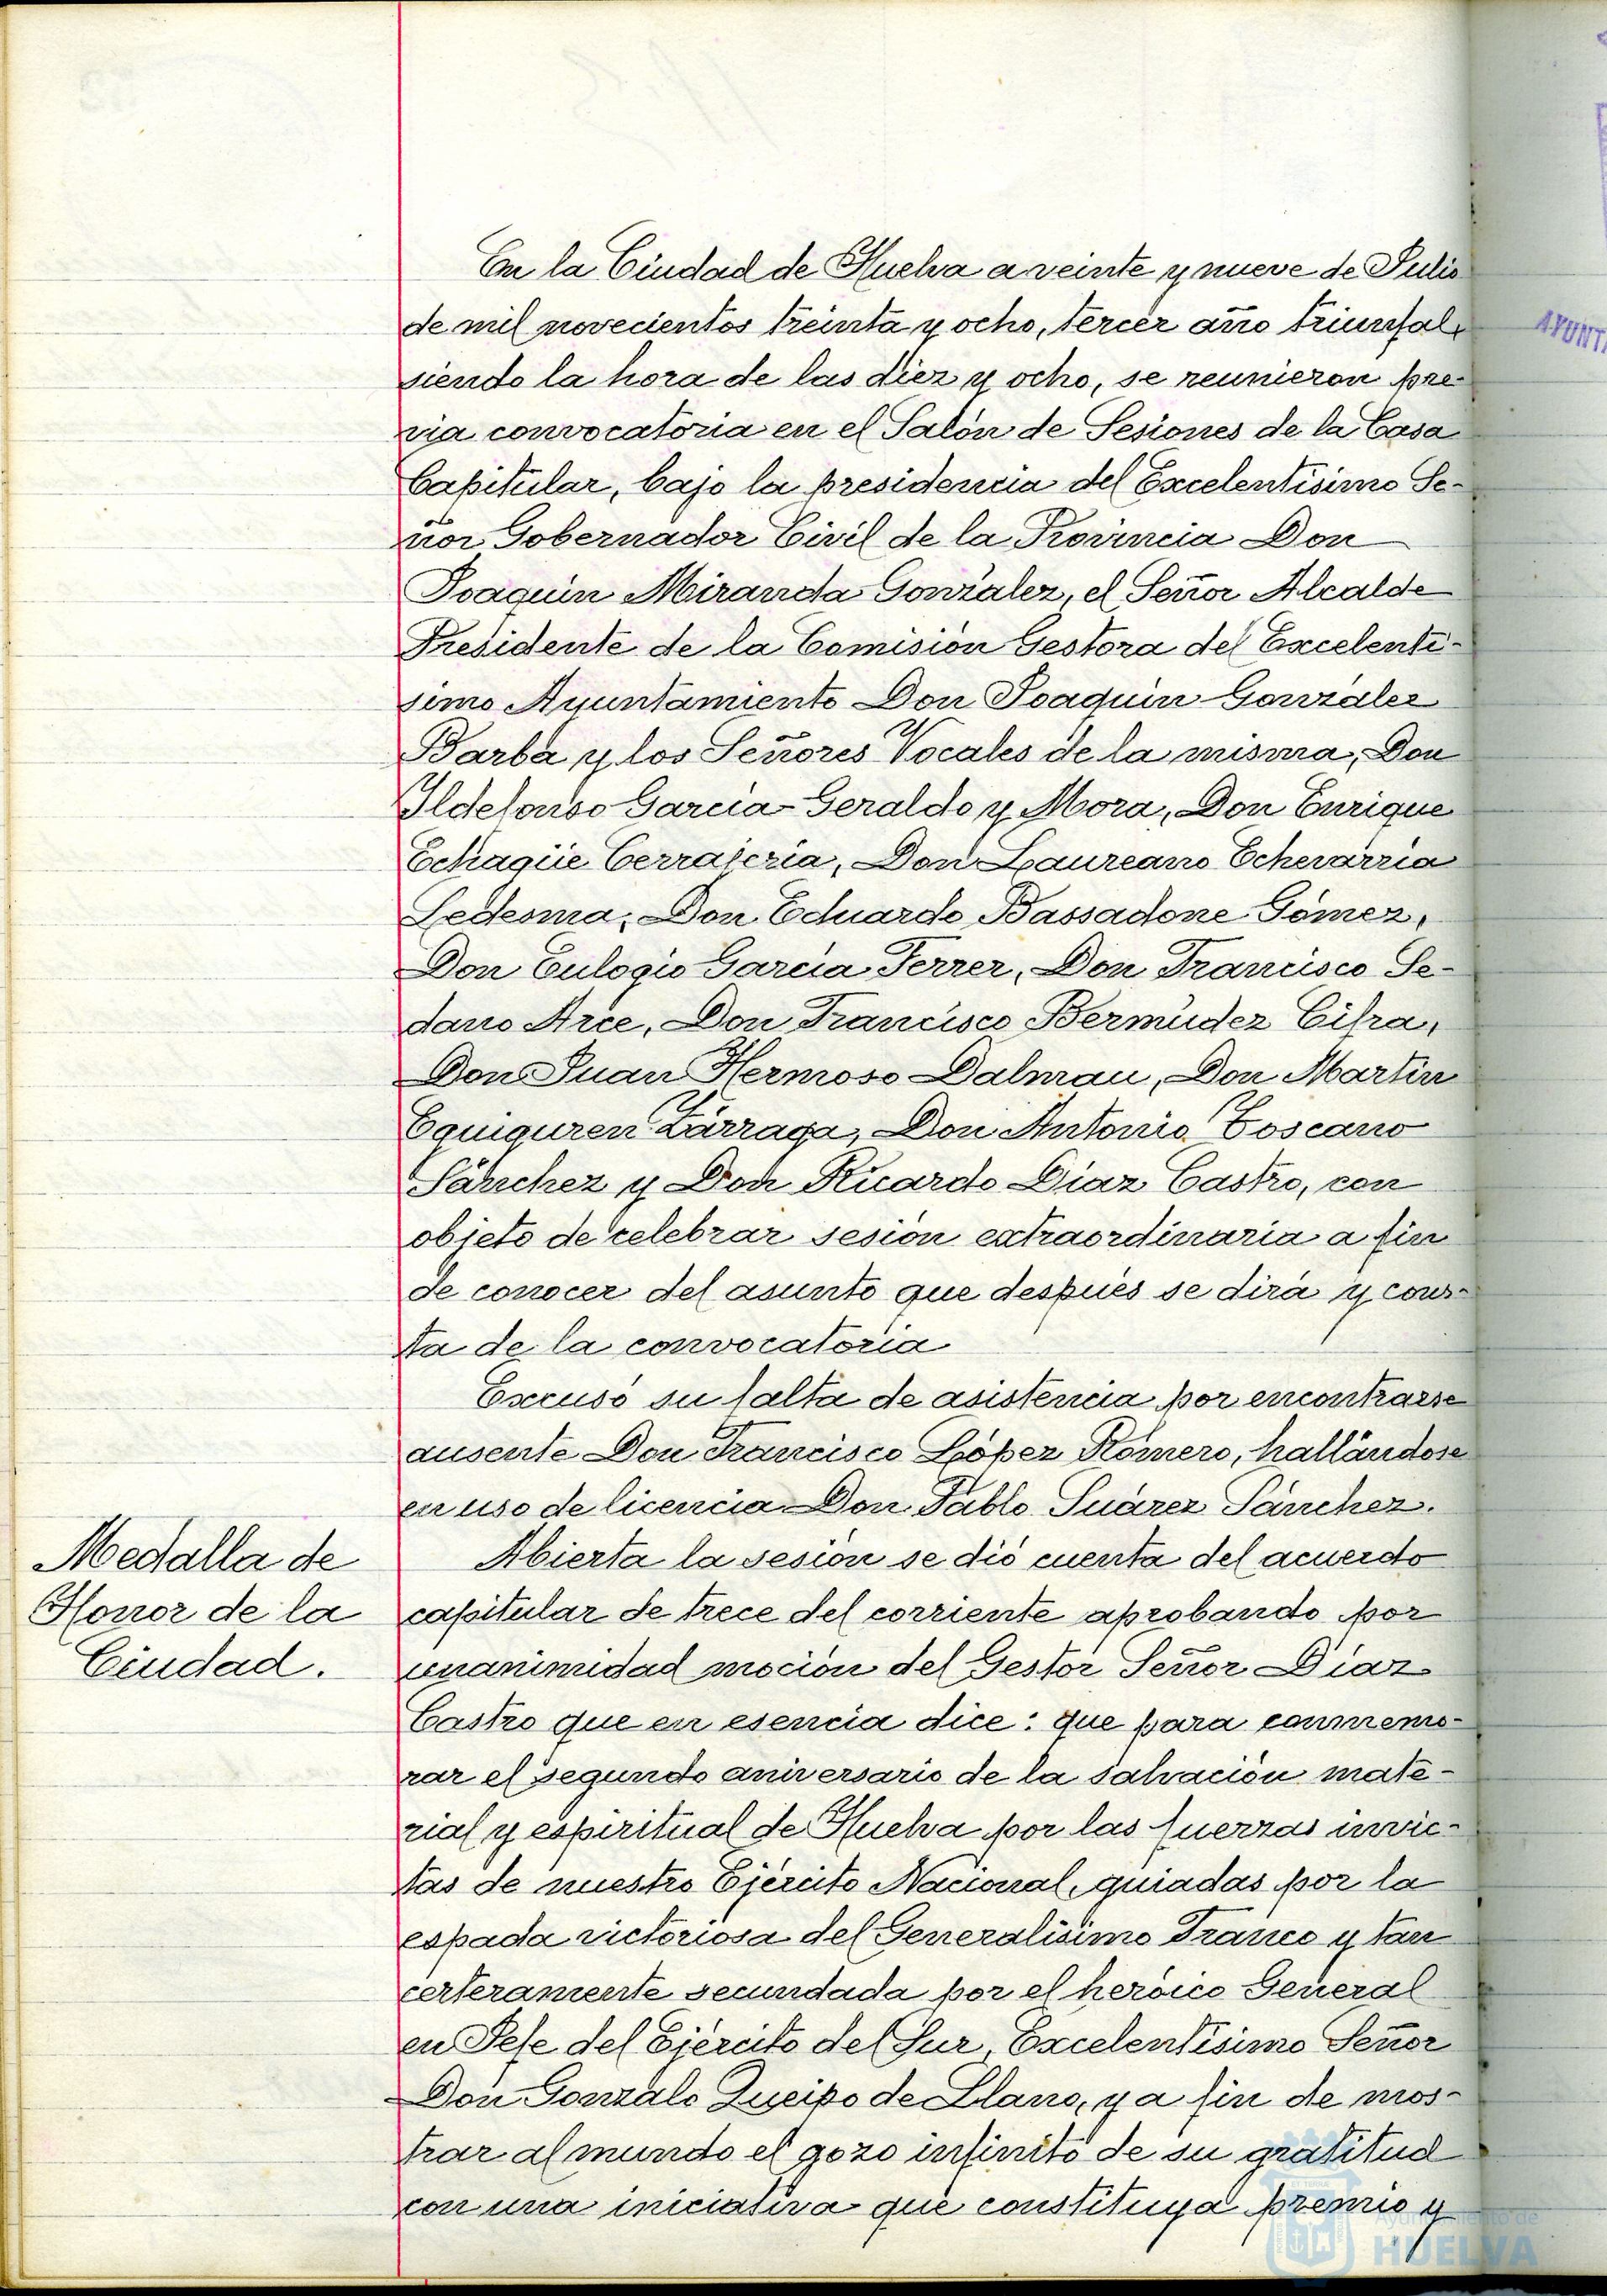 En la Ciudad de Huelva a veinte y nueve de Julio
de mil novecientos treinta y ocho, tercer año triunfal,
siendo la hora de las diez y ocho, se reunieron pre-
via convocatoria en el Salón de Sesiones de la Casa
Capitular, bajo la presidencia del Excelentísimo Se-
ñor Gobernador Civil de la Provincia Don
Joaquín Miranda González, el Señor Alcalde
Presidente de la Comisión Gestora del Excelentí-
simo Ayuntamiento Don Joaquín González
Barba y los Señores Vocales de la misma, Don
Ildefonso García-Geraldo y Mora, Don Enrique
Echagüe Cerrajería, Don Laureano Echevarría
Ledesma, Don Eduardo Bassadone Gómez,
Don Eulogio García Ferrer, Don Francisco Se-
dano Arce, Don Francisco Bermúdez Cifra,
Don Juan Hermoso Dalmau, Don Martín
Eguiguren Zárraga, Don Antonio Toscano
Sánchez y Don Ricardo Díaz Castro, con
objeto de celebrar sesión extraordinaria a fin
de conocer del asunto que después se dirá y cons-
ta de la convocatoria
Excusó su falta de asistencia por encontrarse
ausente Don Francisco López Romero, hallándose
en uso de licencia Don Pablo Suárez Sánchez.
Medalla de
Honor de la
Ciudad.
Abierta la sesión se dió cuenta del acuerdo
capitular de trece del corriente aprobando por
unanimidad moción del Gestor Señor Díaz
Castro que en esencia dice: que para conmemo-
rar el segundo aniversario de la salvación mate-
rial y espiritual de Huelva por las fuerzas invic-
tas de nuestro Ejército Nacional, guiadas por la
espada victoriosa del Generalísimo Franco y tan
certeramente secundada por el heróico General
en Jefe del Ejército del Sur, Excelentísimo Señor
Don Gonzalo Queipo de Llano, y a fin de mos-
trar al mundo el gozo infinito de su gratitud
con una iniciativa que constituya premio y
Ayuntamiento de
HUELVA